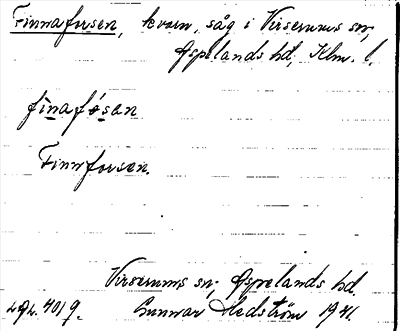 Finnaforsen, kvarn, såg i Virserums sn,
Aspelands hd, Klm. l.
finafósan
Finnforsen.
Virserums sn; Aspelands hd.
Gunnar Hedström 1941